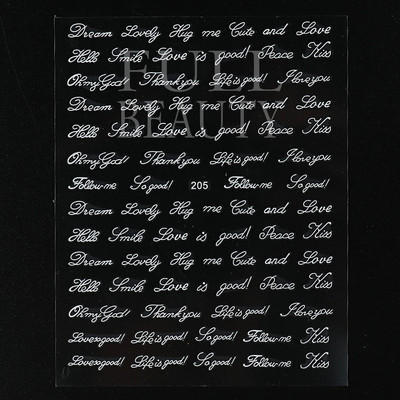 Dream Lovely Hug me Cute and Love
Hello Smile Love is good! Peace Kiss
FULL
Oh my God! Thank you Life is good! I love you
Dream Lovely Hug me Cute and Love
BEAUTY
Hello Smile Love is good! Peace Kiss
Oh my God! Thank you Life is good! I love you
Follow me So good! 205 Follow me So good!
Dream Lovely Hug me Cute and Love
Hello Smile Love is good! Peace Kiss
Dream Lovely Hug me Cute and Love
Hello Smile Love is good! Peace Kiss
Oh my God! Thank you Life is good! I love you
Love so good! Life is good! So good! Follow me Kiss
Love so good! Life is good! So good! Follow me Kiss